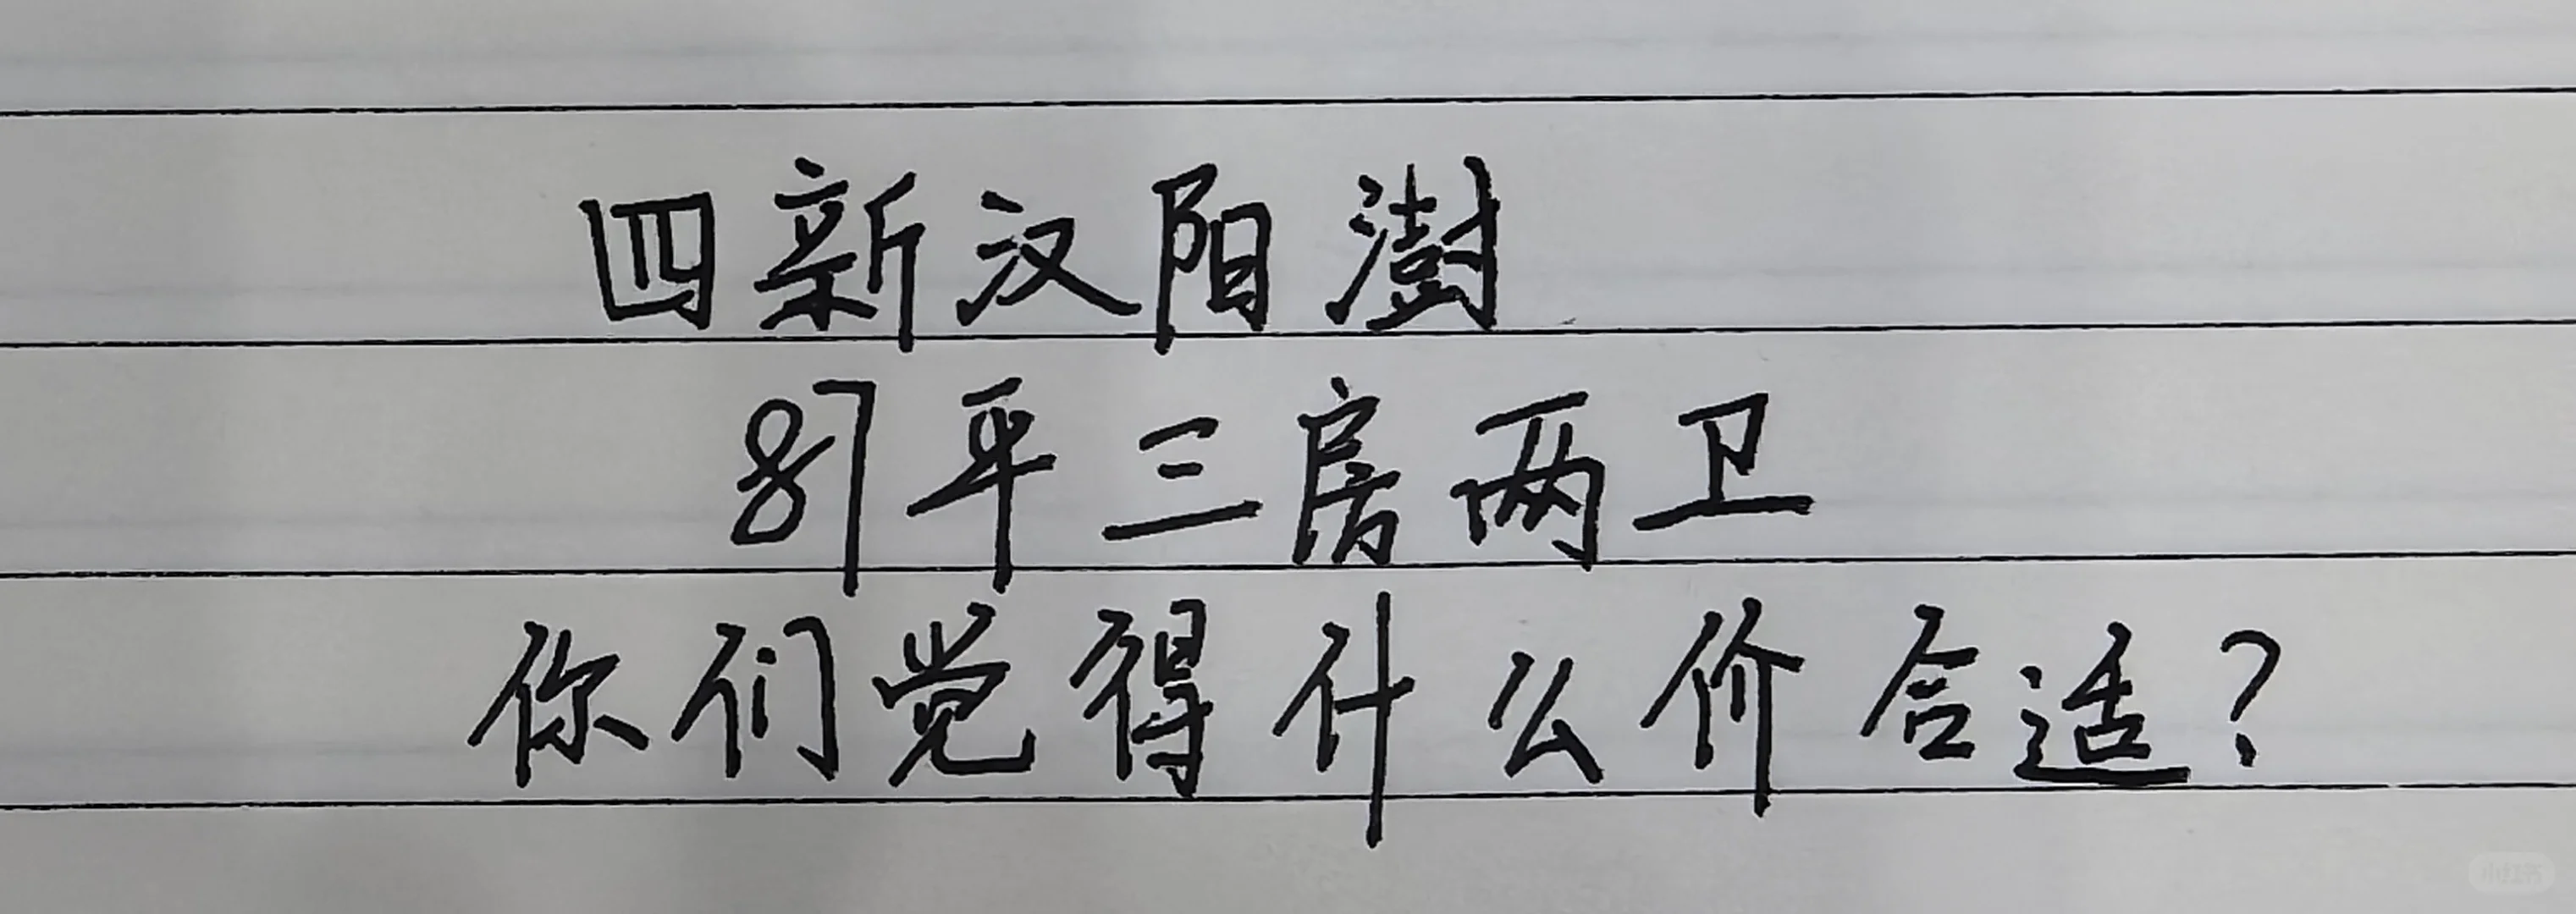 四新汉阳澍
87平三房两卫
你们觉得什么价合适?
小红书